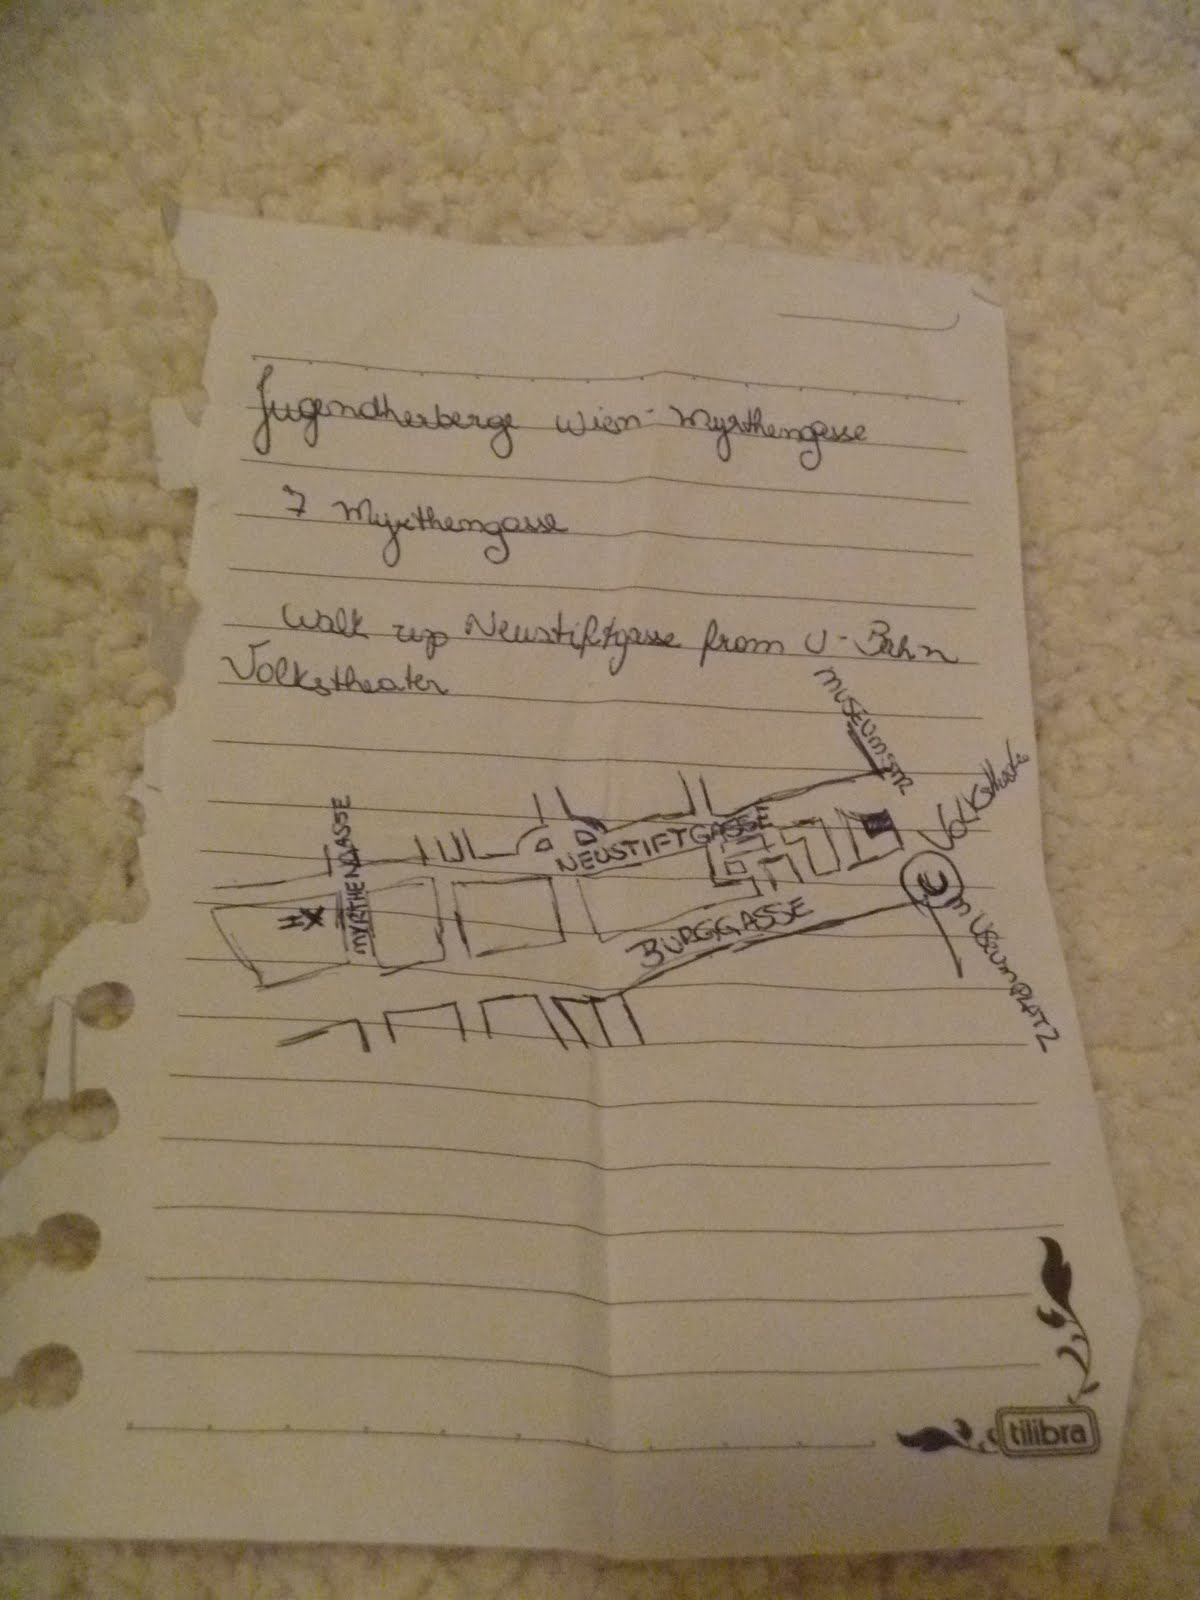 Jugendherberge Wien - Myrthengasse
7 Myrthengasse
Walk up Neustiftgasse from U-Bahn
Volkstheater
MUSEUMSTR
MYRTHENGASSE
NEUSTIFTGASSE
BURGGASSE
MUSEUMPLATZ
tilibra